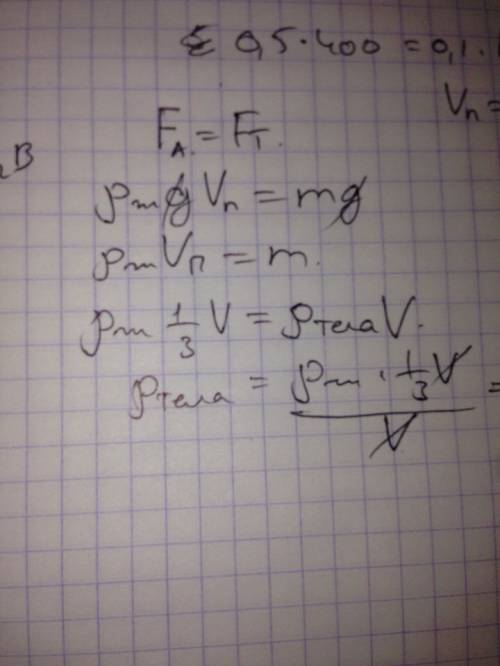 0,5·400 = 0,1·
Vп =
В
F_A = F_T.
ρ_ж g Vп = mg
ρ_ж Vп = m.
ρ_ж 1/3 V = ρ_тела V.
ρ_тела = ρ_ж · 1/3 V / V =